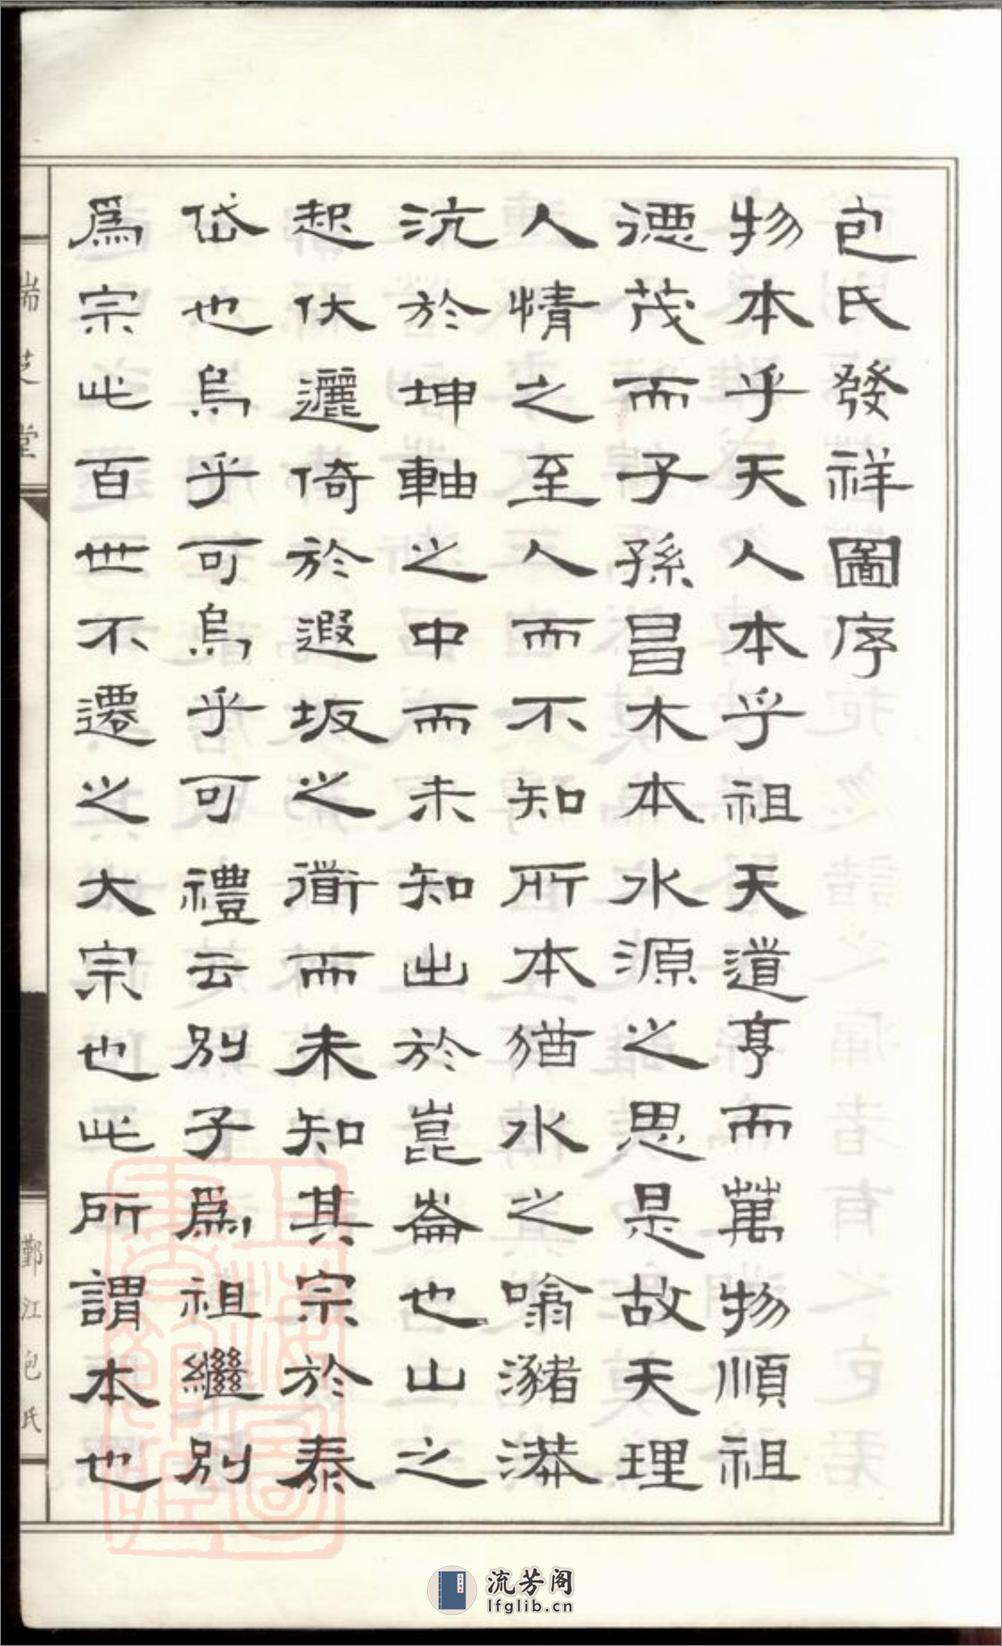 包氏發祥圖序
物本乎天人本乎祖天道亨而萬物順祖
德茂而子孫昌木本水源之思是故天理
人情之至人人而不知所本猶水之噏瀦漭
沆於坤軸之中而未知出於崑崙也山之
起伏邐倚於遐坂之衝而未知其宗於泰
岱也烏乎可烏乎可禮云別子爲祖繼別
爲宗此百世不遷之大宗也此所謂本也
端芝堂
鄞江包氏
流芳阁
lfglib.cn